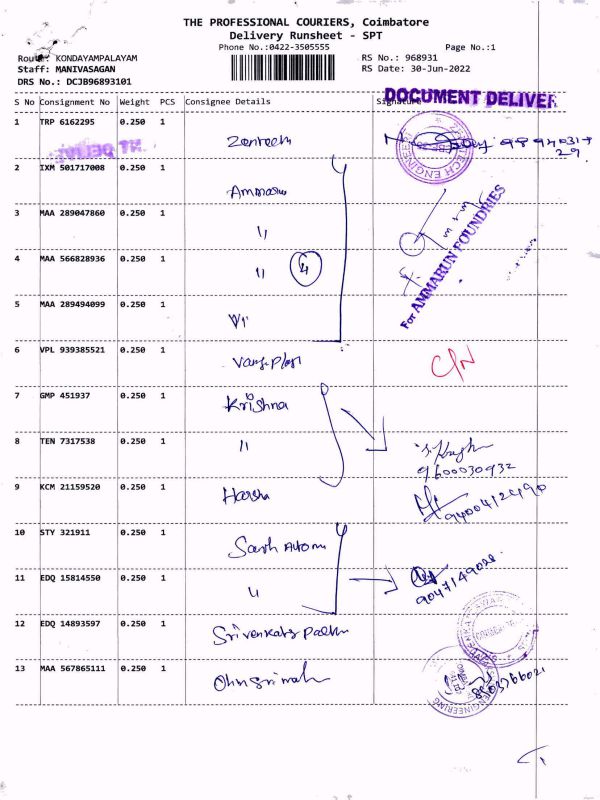 THE PROFESSIONAL COURIERS, Coimbatore
Delivery Runsheet - SPT
Phone No.:0422-3505555 Page No.:1
Route: KONDAYAMPALAYAM RS No.: 968931
Staff: MANIVASAGAN RS Date: 30-Jun-2022
DRS No.: DCJB96893101
DOCUMENT DELIVER
S No Consignment No Weight PCS Consignee Details Signature
1 TRP 6162295 0.250 1
2 IXM 501717008 0.250 1
3 MAA 289047860 0.250 1 "
4 MAA 566828936 0.250 1 " 4
For AMMARUN FOUNDRIES
5 MAA 289494099 0.250 1
6 VPL 939385521 0.250 1 C/N
7 GMP 451937 0.250 1 Krishna
8 TEN 7317538 0.250 1 "
9600030932
9 KCM 21159520 0.250 1 Harsha
9400412490
10 STY 321911 0.250 1
11 EDQ 15814550 0.250 1 "
9047149028
12 EDQ 14893597 0.250 1
13 MAA 567865111 0.250 1